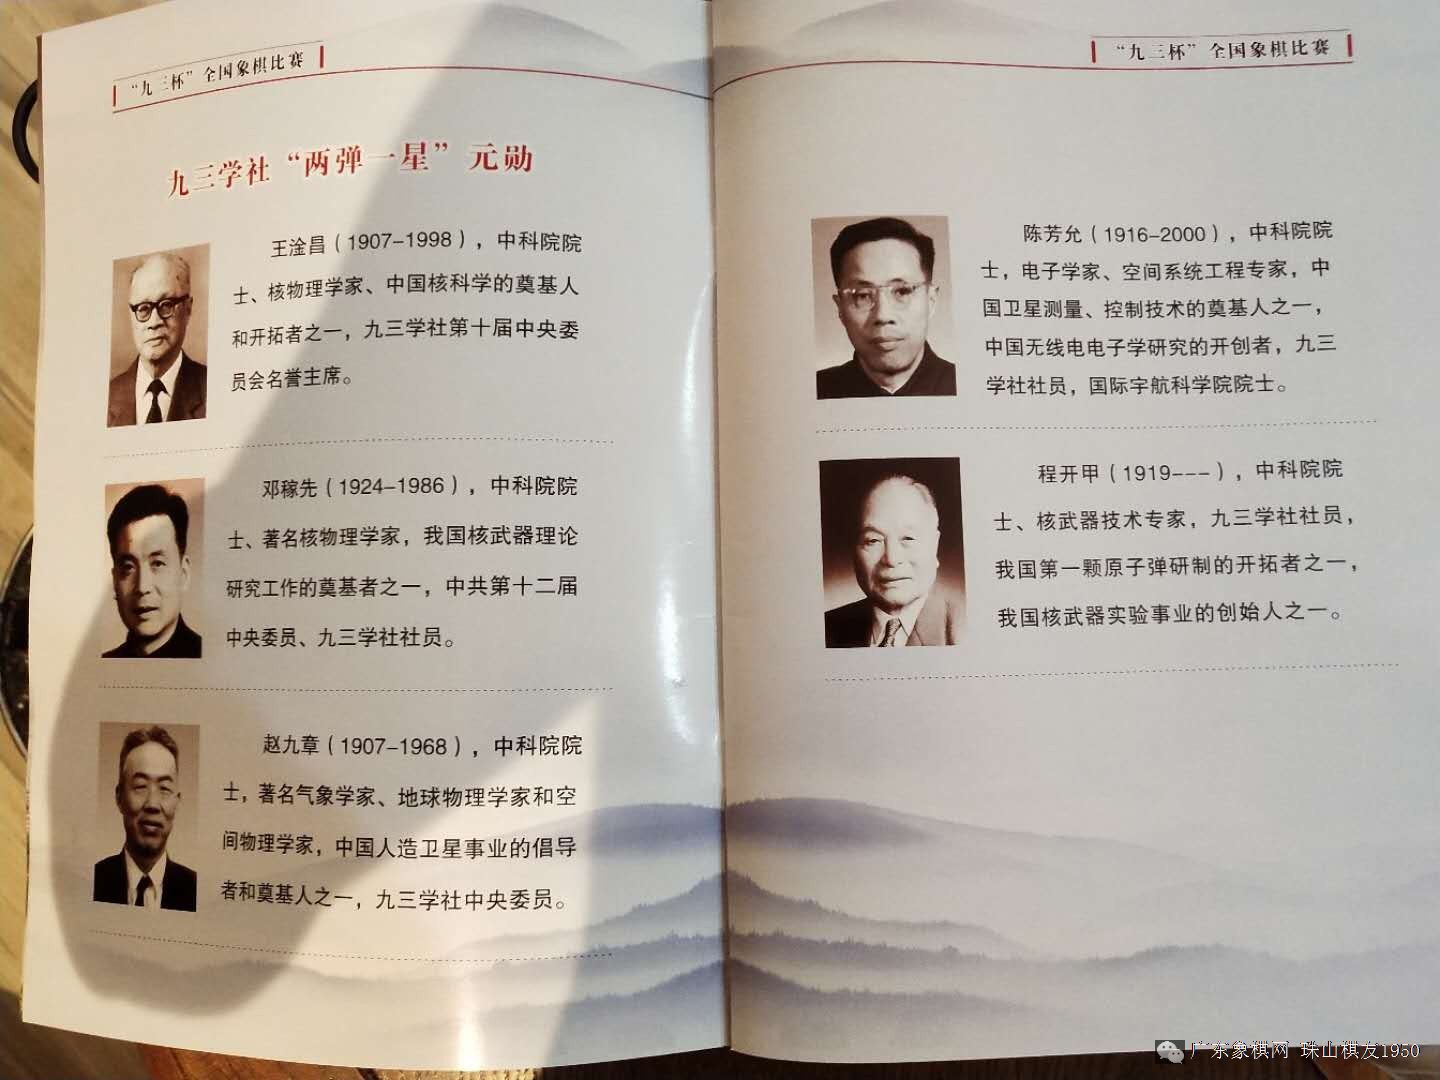 “九三杯”全国象棋比赛
九三学社“两弹一星”元勋
王淦昌（1907-1998），中科院院
士、核物理学家、中国核科学的奠基人
和开拓者之一，九三学社第十届中央委
员会名誉主席。
邓稼先（1924-1986），中科院院
士、著名核物理学家，我国核武器理论
研究工作的奠基者之一，中共第十二届
中央委员、九三学社社员。
赵九章（1907-1968），中科院院
士，著名气象学家、地球物理学家和空
间物理学家，中国人造卫星事业的倡导
者和奠基人之一，九三学社中央委员。
“九三杯”全国象棋比赛
陈芳允（1916-2000），中科院院
士，电子学家、空间系统工程专家，中
国卫星测量、控制技术的奠基人之一，
中国无线电电子学研究的开创者，九三
学社社员，国际宇航科学院院士。
程开甲（1919---），中科院院
士、核武器技术专家，九三学社社员，
我国第一颗原子弹研制的开拓者之一，
我国核武器实验事业的创始人之一。
广东象棋网 珠山棋友1950